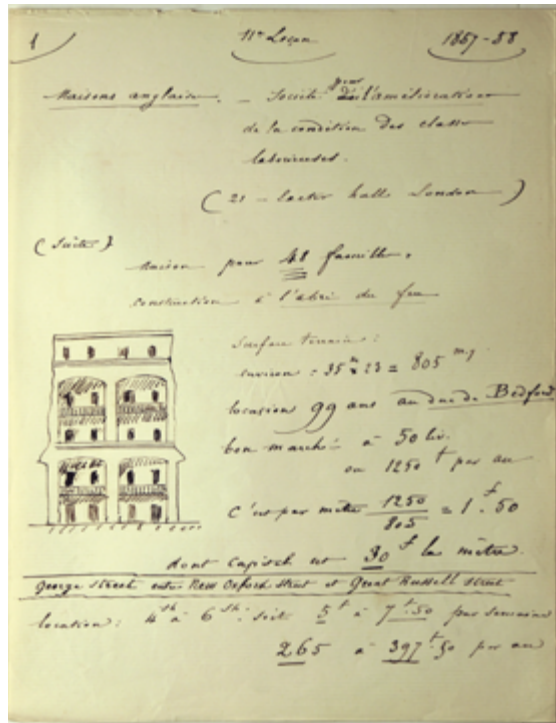 1 11e Leçon 1857-58
Maisons anglaises. - Société pour l'amélioration
de la condition des classes
laborieuses.
(21 - Exeter hall London)
(Suite)
Maison pour 48 familles.
construction à l'abri du feu
Surface terrain :
environ : 35m x 23 = 805 m.q
location 99 ans au duc de Bedford
bon marché : à 50 liv.
ou 1250f par an
C'est par mètre 1250/805 = 1f.50
dont capital est 30f le mètre.
George Street entre New Oxford Street et Great Russell Street
location : 4sh à 6sh : soit 5f à 7f.50 par semaine
265 à 397f.50 par an